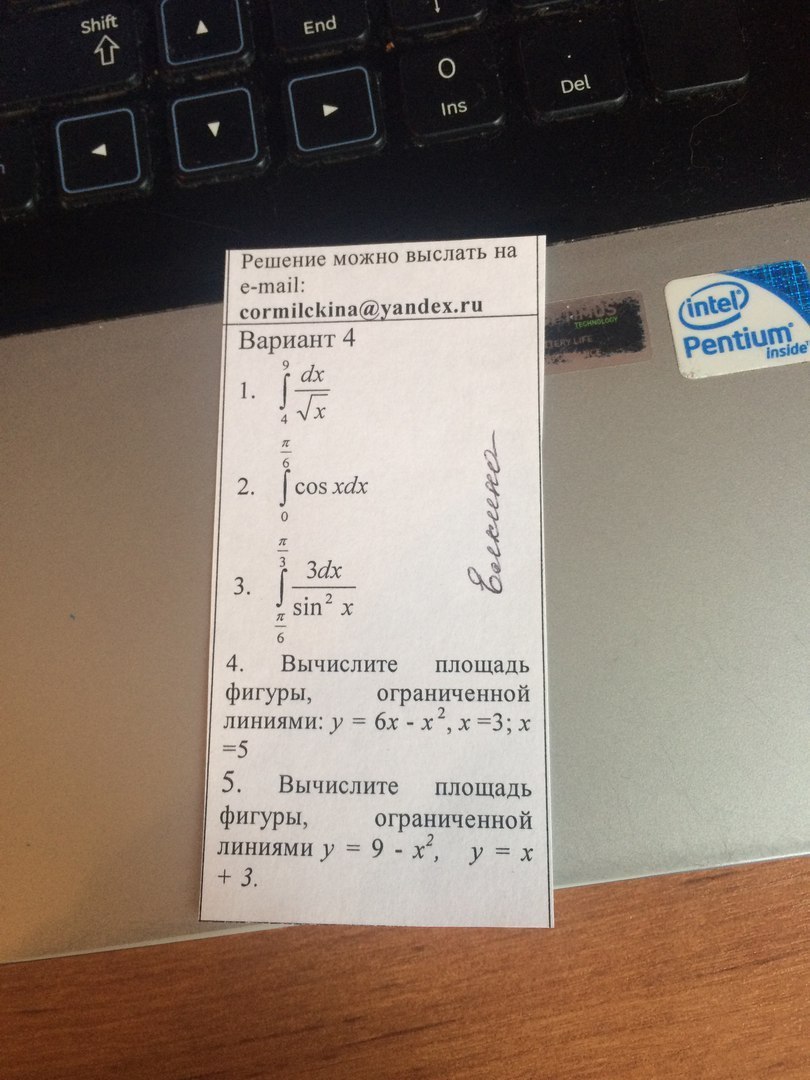 Shift
End
0
Ins
Del
Решение можно выслать на
e-mail:
cormilckina@yandex.ru
Вариант 4
1. ∫₄⁹ dx/√x
2. ∫₀^(π/6) cos xdx
3. ∫_(π/6)^(π/3) 3dx/sin² x
4. Вычислите площадь
фигуры, ограниченной
линиями: y = 6x - x², x =3; x
=5
5. Вычислите площадь
фигуры, ограниченной
линиями y = 9 - x², y = x
+ 3.
TECHNOLOGY
LIFE
intel
Pentium
inside